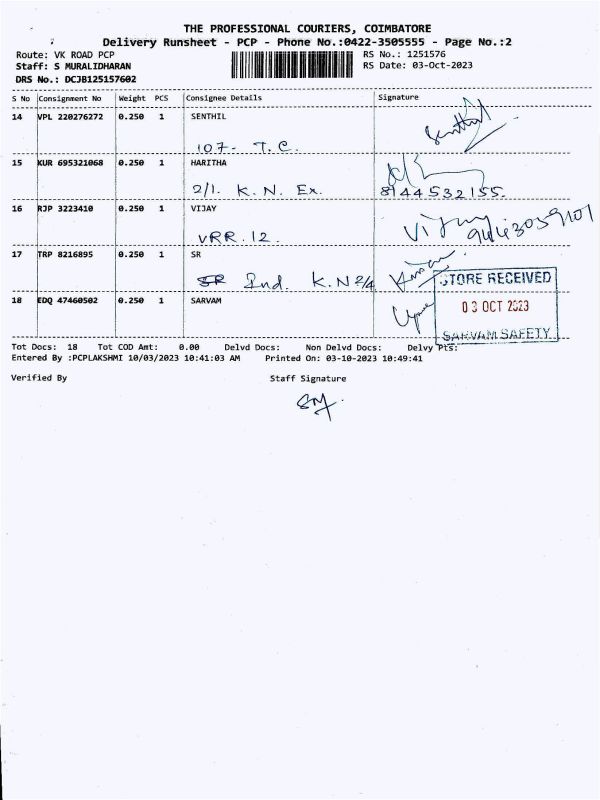 THE PROFESSIONAL COURIERS, COIMBATORE
Delivery Runsheet - PCP - Phone No.:0422-3505555 - Page No.:2
Route: VK ROAD PCP RS No.: 1251576
Staff: S MURALIDHARAN RS Date: 03-Oct-2023
DRS No.: DCJB125157602
S No Consignment No Weight PCS Consignee Details Signature
14 VPL 220276272 0.250 1 SENTHIL Senthil
107- T.C.
15 KUR 695321068 0.250 1 HARITHA
2/1. K. N. Ex. 8144532155.
16 RJP 3223410 0.250 1 VIJAY Vijay
VRR.12.
17 TRP 8216895 0.250 1 SR
SR Ind. K.N 2/4
STORE RECEIVED
18 EDQ 47460502 0.250 1 SARVAM
03 OCT 2023
SARVAM SAFETY
Tot Docs: 18 Tot COD Amt: 0.00 Delvd Docs: Non Delvd Docs: Delvy Pts:
Entered By :PCPLAKSHMI 10/03/2023 10:41:03 AM Printed On: 03-10-2023 10:49:41
Verified By Staff Signature